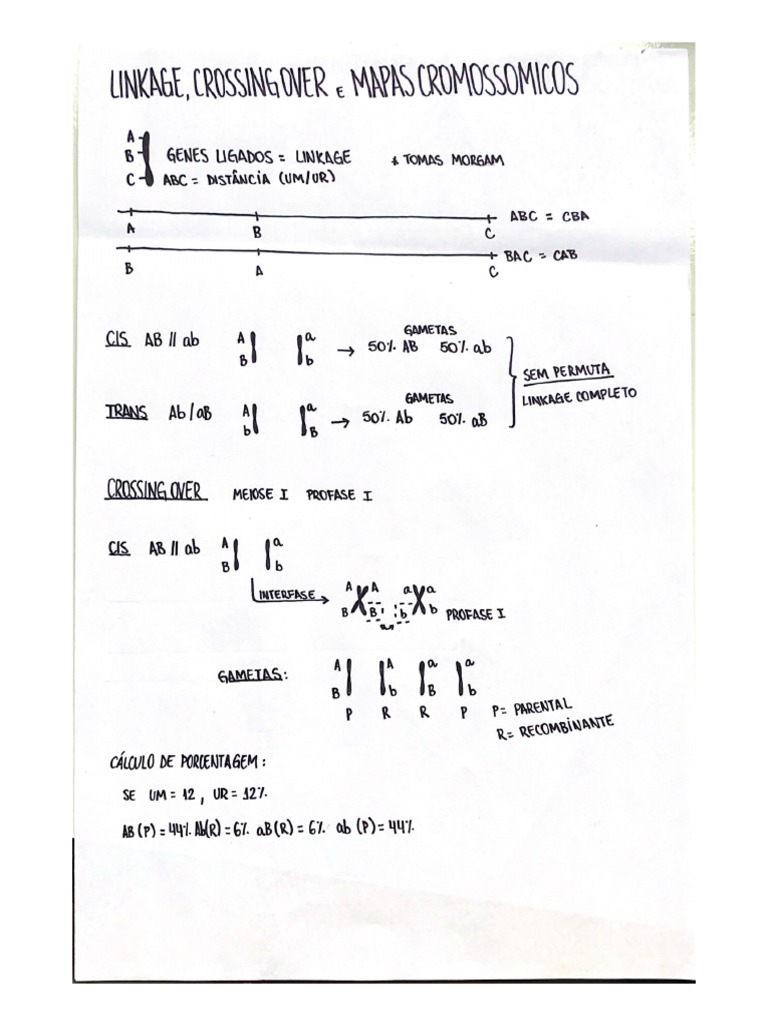 LINKAGE, CROSSING OVER E MAPAS CROMOSSOMICOS
A
B GENES LIGADOS = LINKAGE * TOMAS MORGAM
C ABC = DISTÂNCIA (UM/UR)
A B C ABC = CBA
B A C BAC = CAB
GAMETAS
CIS AB // ab A a → 50% AB 50% ab
B b
SEM PERMUTA
LINKAGE COMPLETO
GAMETAS
TRANS Ab / aB A a → 50% Ab 50% aB
b B
CROSSING OVER MEIOSE I PROFASE I
CIS AB // ab A a
B b
INTERFASE → A A a a
B B b b PROFASE I
GAMETAS: A A a a
B b B b
P R R P P = PARENTAL
R = RECOMBINANTE
CÁLCULO DE PORCENTAGEM:
SE UM = 12, UR = 12%
AB (P) = 44% Ab(R) = 6% aB(R) = 6% ab (P) = 44%